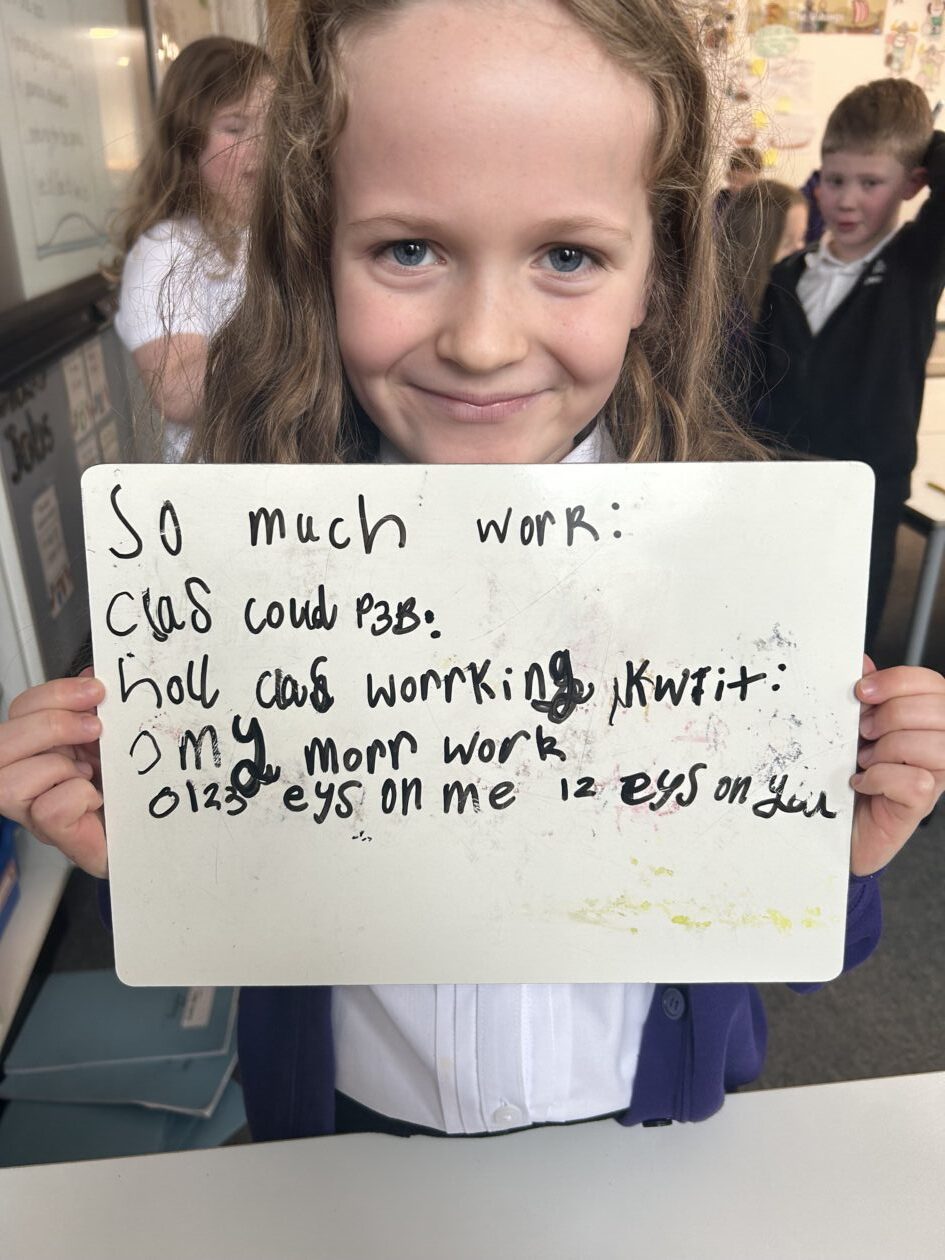 So much work:
clas coud P3B.
holl clas worrking Kwrit:
O my morr work
0123 eys on me 12 eys on you
Jobs